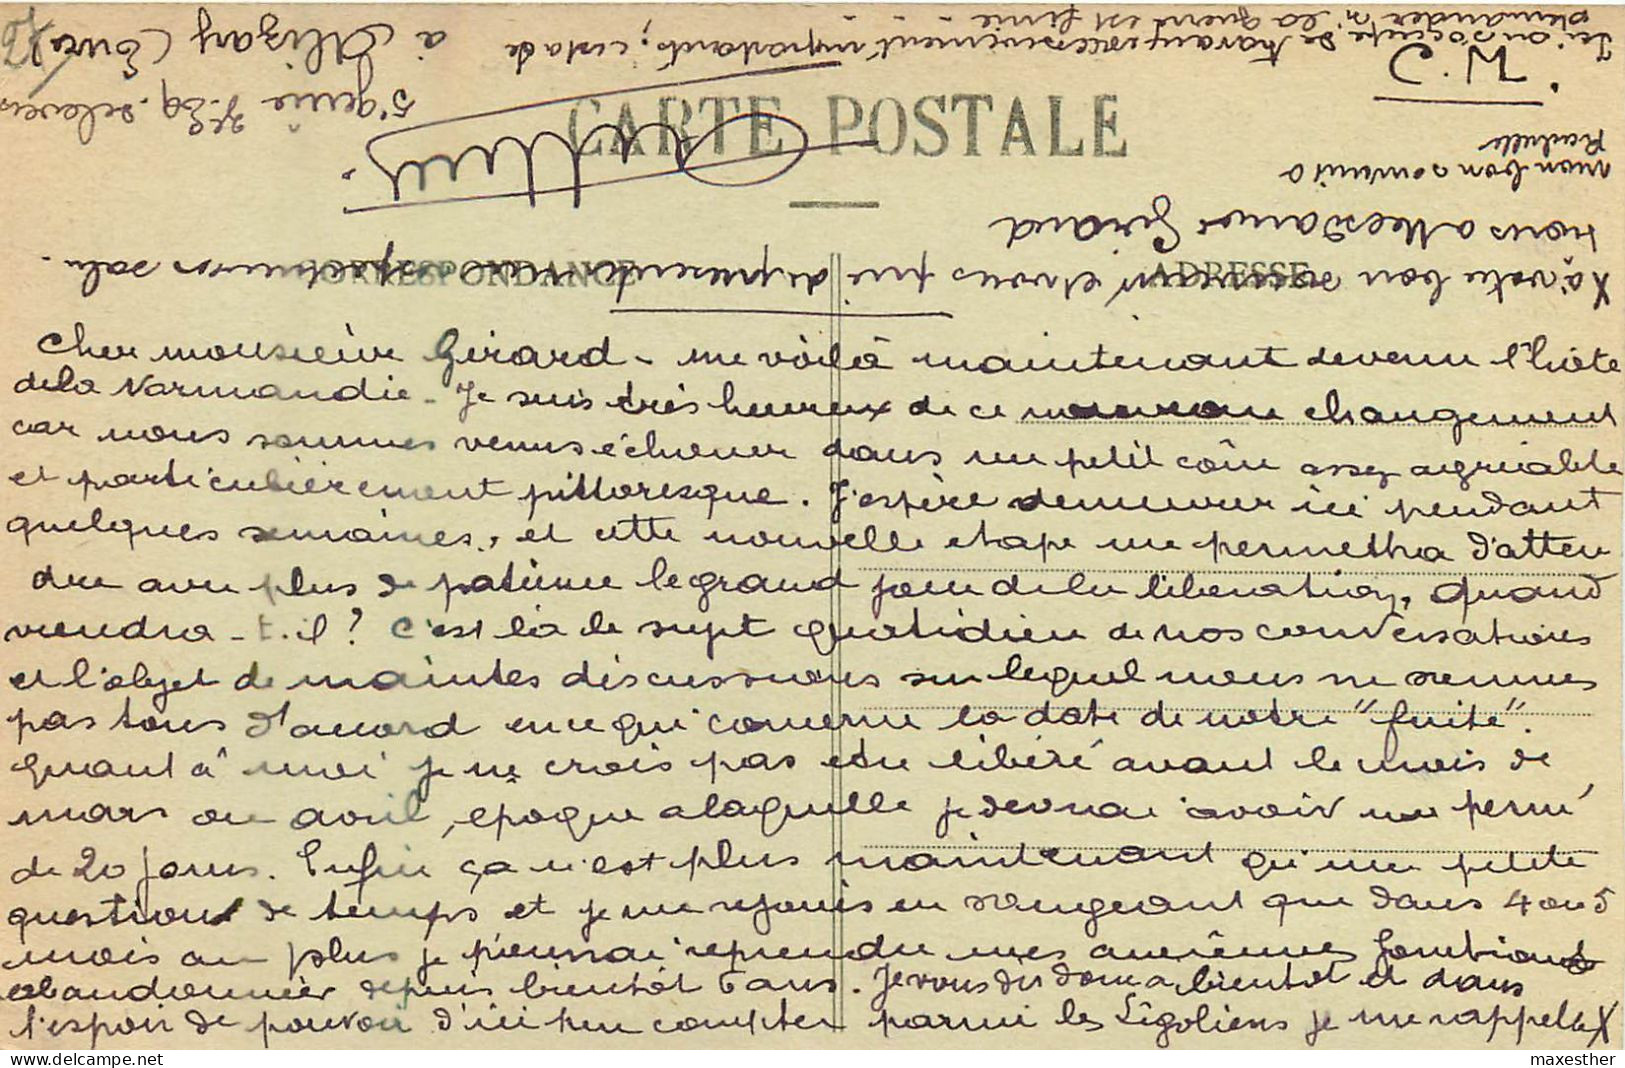 CARTE POSTALE
CORRESPONDANCE
ADRESSE
Cher monsieur Girard - me voilà maintenant devenu l'hôte
de la Normandie - Je suis très heureux de ce nouveau changement
car nous sommes venus échouer dans un petit coin assez agréable
et particulièrement pittoresque. J'espère demeurer ici pendant
quelques semaines, et cette nouvelle étape me permettra d'atten
dre avec plus de patience le grand jour de la libération, Quand
viendra-t-il ? C'est là le sujet quotidien de nos conversations
et l'objet de maintes discussions sur lequel nous ne sommes
pas tous d'accord en ce qui concerne la date de notre "fuite".
Quant à moi je ne crois pas être libéré avant le mois de
mars ou avril, époque a laquelle je devrai avoir une perm'
de 20 jours. Enfin ça n'est plus maintenant qu'une petite
question de temps et je me rejouis en songeant que dans 4 ou 5
mois au plus je pourrai reprendre mes anciennes fonctions
abandonnées depuis bientôt 6 ans. Je vous dis donc a bientôt et dans
l'espoir de pouvoir d'ici peu compter parmi les Ligoliens je me rappelle X
X à votre bon souvenir et vous prie de présenter mes respectueux salu.
mon bon souvenir
5e génie
à Alizay (Eure)
P.S.
Ici on s'occupe de travaux excessivement importants, c'est a de
demander si la guerre est finie - - -
maxesther